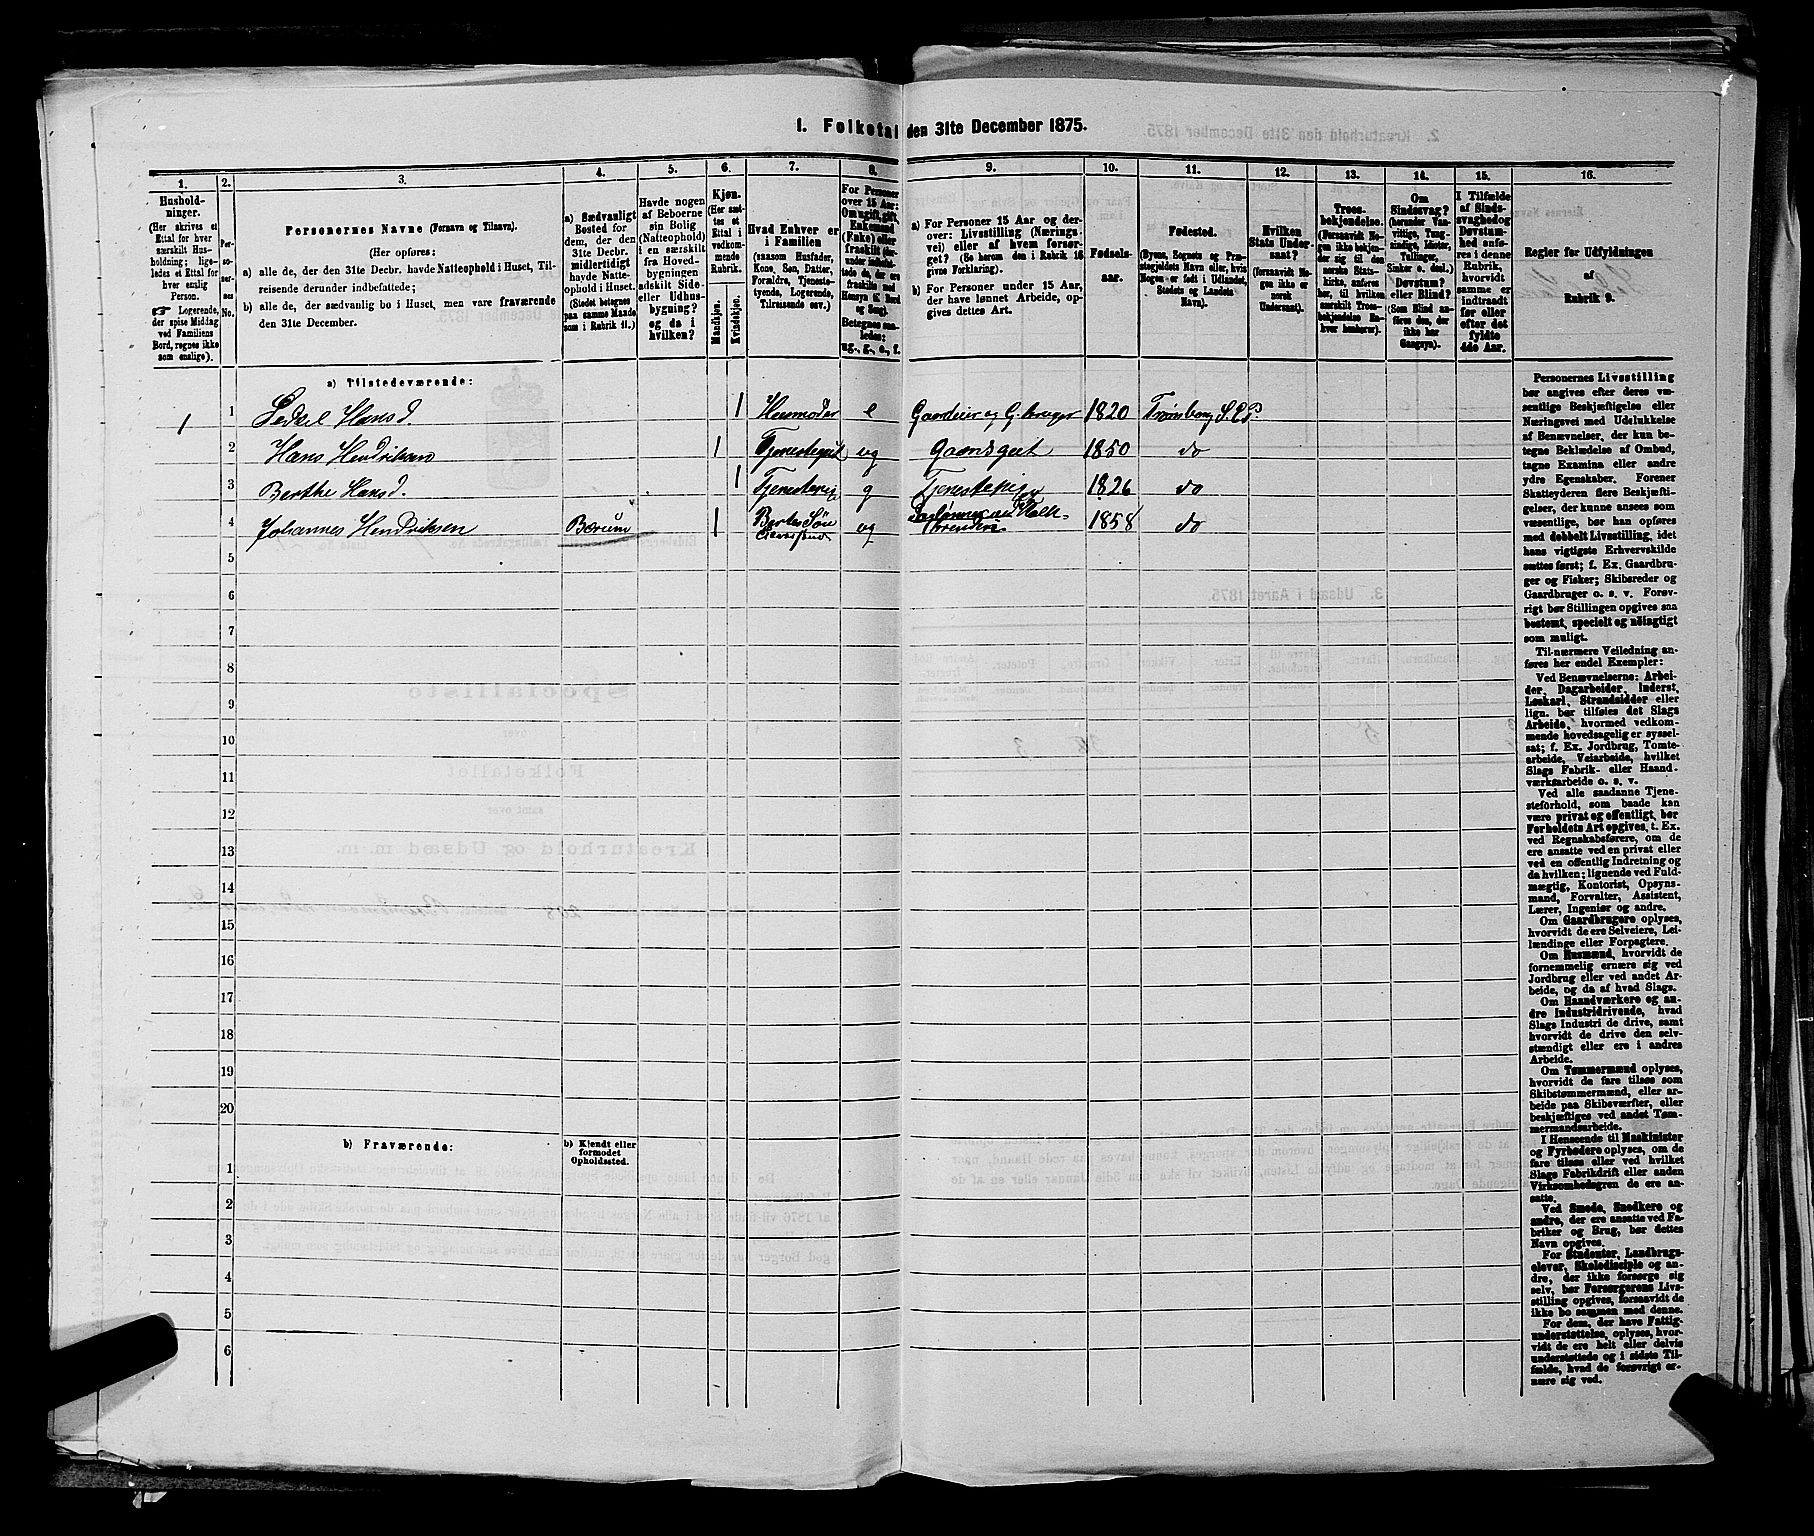 1. Folketal den 31te December 1875.
1.
Husholdninger.
(Her skrives et
Ettal for hver
særskilt Husholdning;
ligeledes et Ettal for
hver enslig
Person.
Logerende,
der spise Middag
ved Familiens
Bord, regnes ikke
som enslige).
2.
Personernes
No.
3.
Personernes Navne (Fornavn og Tilnavn).
(Her opføres:
a) alle de, der den 31te Decbr. havde Natteophold i Huset, Tilreisende
derunder indbefattede;
b) alle de, der sædvanlig bo i Huset, men vare fraværende
den 31te December.
4.
a) Sædvanligt
Bosted for
dem, der den
31te Decbr.
midlertidigt
havde Natteophold
i Huset.
(Stedet betegnes
paa samme Maade
som i Rubrik 11.)
5.
Havde nogen
af Beboerne
sin Bolig
(Natteophold)
i en særskilt
fra Hovedbygningen
adskilt Side-
eller Udhusbygning?
og da i
hvilken?
6.
Kjøn.
(Her sættes
et
Ettal i
vedkommende
Rubrik.)
Mandkjøn.
Kvindekjøn.
7.
Hvad Enhver er
i Familien
(saasom Husfader,
Kone, Søn, Datter,
Forældre, Tjenestetyende,
Logerende,
Tilreisende osv.)
8.
For Personer
over 15 Aar:
Om ugift, gift,
Enkemand
(Enke) eller
fraskilt
Betegnes saaledes:
ug., g., e., f.
9.
a) For Personer 15 Aar og derover:
Livsstilling (Næringsvei)
eller af hvem forsørget?
(Se herom den i Rubrik 16
givne Forklaring).
b) For Personer under 15 Aar,
der have lønnet Arbeide, opgives
dettes Art.
10.
Fødselsaar.
11.
Fødested.
(Byens, Sognets og Præstegjeldets
Navn eller, hvis
Nogen er født i Udlandet,
Stedets og Landets
Navn).
12.
Hvilken
Stats Undersaat?
(forsaavidt Nogen
ikke er
norsk
Undersaat).
13.
Troesbekjendelse.
(Forsaavidt Nogen
ikke bekjender
sig til den
norske Statskirke,
anføres
her, til hvilken
særskilt Troesbekjendelse
Enhver henhører).
14.
Om
Sindssvag?
(herunder Vanvittige,
Tungsindige,
Idioter,
Tullinger,
Sinker o. desl.)
Døvstum?
eller Blind?
(Som Blind anføres
den, der
ikke har
Gangsyn).
15.
I Tilfælde
af Sindssvaghed og
Døvstumhed
anføres
i denne
Rubrik,
hvorvidt
samme er
indtraadt
før eller
efter det
fyldte
4de Aar.
16.
Regler for Udfyldningen
af
Rubrik 9.
a) Tilstedeværende:
1 1 Sedsel Hansd. 1 Husmoder e Gaardeier og G. bruger 1820 S. P.
2 Hans Hendriksen 1 Tjenestegut ug Gaardsgut 1850 do
3 Berthe Hansd. 1 Tjenestepige g Tjenestepige 1826 do
4 Johannes Hendriksen Bærum 1 Berthes Søn ug 1858 do
5
6
7
8
9
10
11
12
13
14
15
16
17
18
19
20
b) Fraværende:
b) Kjendt eller
formodet
Opholdssted.
1
2
3
4
5
6
Personernes Livsstilling
bør angives efter deres væsentlige
Beskjæftigelse eller
Næringsvei med Udelukkelse
af Benævnelser, der kun betegne
Beklædelse af Ombud,
tagne Examina eller andre
ydre Egenskaber. Forener
Skatteyderen flere Beskjæftigelser,
der kunne ansees som
væsentlige, bør han opføres
med dobbelt Livsstilling, idet
hans vigtigste Erhvervskilde
sættes først; f. Ex. Gaardbruger
og Fisker; Skibsreder og
Gaardbruger o. s. v. Forøvrigt
bør Stillingen opgives saa
bestemt, specielt og nöiagtigt
som muligt.
Til nærmere Veiledning anføres
her endel Exempler:
Ved Benævnelserne: Arbeider,
Dagarbeider, Inderst,
Løskarl, Strandsidder eller
lign. bør tilføies det Slags
Arbeide, hvormed vedkommende
hovedsagelig er sysselsat;
f. Ex. Jordbrug, Tomtearbeide,
Veiarbeide, hvilket
Slags Fabrik- eller Haandværksarbeide
o. s. v.
Ved alle saadanne Tjenesteforhold,
som baade kan
være privat og offentligt, bør
Forholdets Art opgives, t. Ex.
ved Regnskabsførere, om de
ere ansatte ved en privat eller
ved en offentlig Indretning og
da hvilken; lignende ved Fuldmægtig,
Kontorist, Opsynsmand,
Forvalter, Assistent,
Lærer, Ingeniør og andre.
Om Gaardbrugere oplyses,
hvorvidt de ere Selveiere, Leilændinge
eller Forpagtere.
Om Husmænd, hvorvidt de
fornemmelig ernære sig ved
Jordbrug eller ved andet Arbeide,
og da af hvad Slags.
Om Haandværkere og andre
Industridrivende, hvad
Slags Industri de drive, samt
hvorvidt de drive den selvstændigt
eller ere i andres
Arbeide.
Om Tømmermænd oplyses,
hvorvidt de fare tilsøs som
Skibstømmermænd, eller arbeide
paa Skibsværfter, eller
beskjæftiges ved andet Tømmermandsarbeide.
I Henseende til Maskinister
og Fyrbødere oplyses, om de
fare tilsøs eller ved hvilket
Slags Fabrikdrift eller anden
Virksomhedsgren de ere ansatte.
Ved Smede, Snedkere og
andre, der ere ansatte ved Fabriker
og Brug, bør dettes
Navn opgives.
For Studenter, Landbrugselever,
Skoledisciple og andre,
der ikke forsørge sig
selv, bør Forsørgerens Livsstilling
opgives, forsaavidt de
ikke bo sammen med denne.
For dem, der have Fattigunderstøttelse,
oplyses, hvorvidt
de ere helt eller delvis
understøttede og i sidste Tilfælde,
hvad de forøvrigt ernære
sig ved.